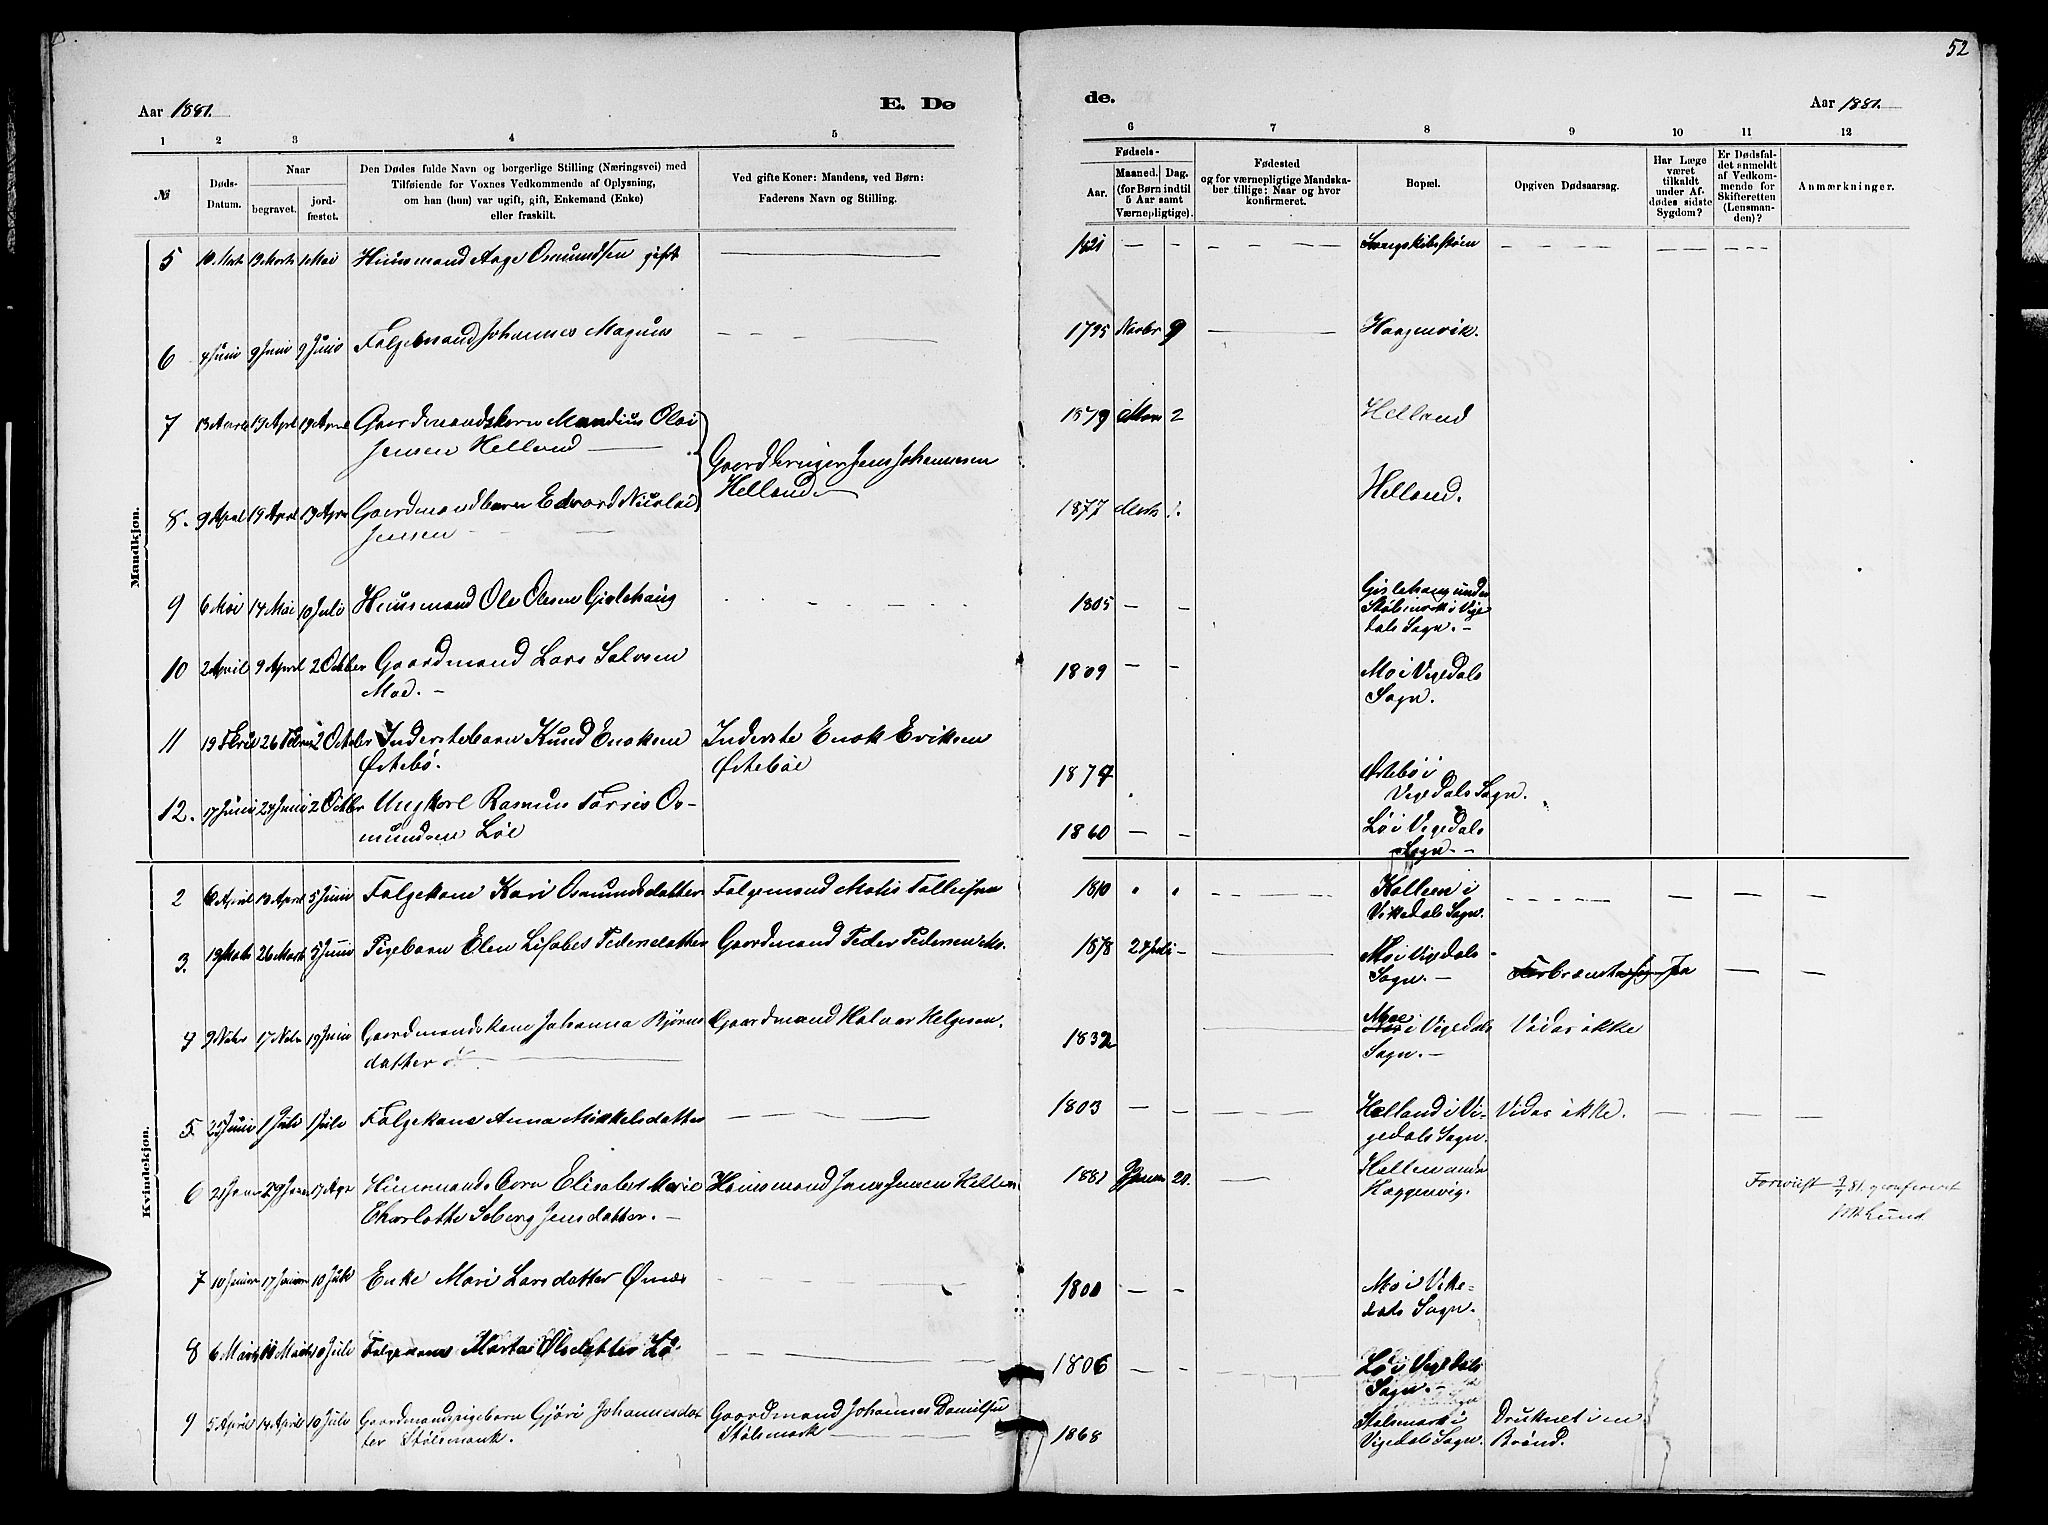 52
Aar 1881.
E. Dø
de.
Aar 1881.
1 2 3 4 5
6 7 8 9 10 11 12
№
Døds-
Datum.
Naar
begravet.
jord-
fæstet.
Den Dødes fulde Navn og borgerlige Stilling (Næringsvei) med
Tilføiende for Voxnes Vedkommende af Oplysning,
om han (hun) var ugift, gift, Enkemand (Enke)
eller fraskilt.
Ved gifte Koner: Mandens, ved Børn:
Faderens Navn og Stilling.
Fødsels-
Aar.
Maaned. Dag.
(for Børn indtil
5 Aar samt
Værnepligtige).
Fødested
og for værnepligtige Mandska-
ber tillige: Naar og hvor
konfirmeret.
Bopæl.
Opgiven Dødsaarsag.
Har Læge
været
tilkaldt
under Af-
dødes sidste
Sygdom?
Er Dødsfal-
det anmeldt
af Vedkom-
mende for
Skifteretten
(Lensman-
den)?
Anmærkninger.
Mandkjøn.
5 10 Marts 19 Marts 1 Mai Huusmand Aage Osmundsen gift 1821
6 4 Juni 9 Juni 9 Juni Folgemand Johannes Magnus 1795 Novbr 9 Haagenvik.
7 13 April 19 April 19 April Gaardmandsbarn Mandius Olai
Jensen Helland
Gaardbruger Jens Johannesen
Helland
1879 2 Helland
8. 9 April 19 April 19 April Gaardmandbarn Edvard Nicolai
Jensen
1877 Marts Helland.
9 6 Mai 14 Mai 10 Juli Huusmand Ole Olesen Gislehaug 1805 Gislehaug under
Stølsmark i Vige
dals Sogn. -
10 2 April 9 April 2 Octber Gaardmand Lars Salvesen
Moe. - 1809 Mo i Vigedals
Sogn.
11 19 Febr 26 Febr 2 Octber Inderstebarn Knud Enoksen
Østebø. Inderste Enok Eriksen
Østebøe 1874 Østebø i
Vigedals Sogn.
12. 17 Juni 24 Juni 2 Octbr Ungkarl Rasmus Torris Os-
mundsen Løe 1860 Lø i Vigedals
Sogn. -
Kvindekjøn.
2 6 April 13 April 5 Juni Folgekone Kari Osmundsdatter Folgemand Matis Tolleifsen 1810 Kolleen i
Vikedals Sogn.
3. 19 Marts 26 Marts 5 Juni Pigebarn Elen Lisabet Pedersdatter Gaardmand Peder Pedersen Mo. 1878 24 Juli Mo i Vigedals
Sogn. - Forbrændt Ja
4 9 Novbr 17 Novbr 19 Juni Gaardmandskone Johanna Bjørns
datter Gaardmand Halvor Helgesen. 1832 i Vigedals
Sogn. - Vides ikke
5. 25 Juni 1 Juli 1 Juli Folgekone Anna Mikkelsdatter 1803 Helland i Vi-
gedals Sogn. Vides ikke.
6 21 Janr 29 Janr 17 Apr Huusmands Barn Elisabet Marie
Charlotte Seberg Jensdatter. - Huusmand Jens Jensen Hellem 1881 Janr 20.
Haggenvig.
M Lund
7 10 Januar 17 Januar 10 Juli Enke Mari Larsdatter Ømæs 1800 Mo i Vike-
dals Sogn.
8 6 Marts 10 Juli Folgekone Marta Olsdatter Lø 1806 Lø i Vigedals
Sogn. -
9 5 April 14 April 10 Juli Gaardmandspigebarn Gjøri Johannesdat
ter Stølsmark. Gaardmand Johannes Danielsen
Stølsmark 1868 Stølsmark i
Vigedals Sogn. Druknet i en
Brønd.